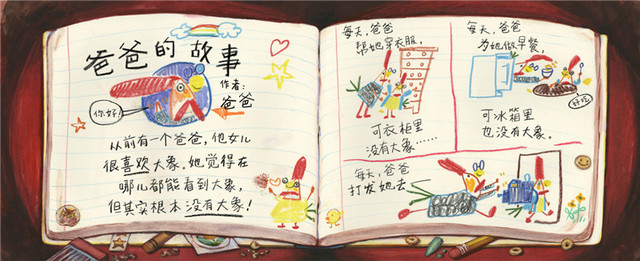 爸爸的故事
作者：
爸爸
你好！
从前有一个爸爸，他女儿
很喜欢大象，她觉得在
哪儿都能看到大象，
但其实根本没有大象！
每天，爸爸
帮她穿衣服，
可衣柜里
没有大象……
每天，爸爸
为她做早餐，
好吃
可冰箱里
也没有大象。
每天，爸爸
打发她去